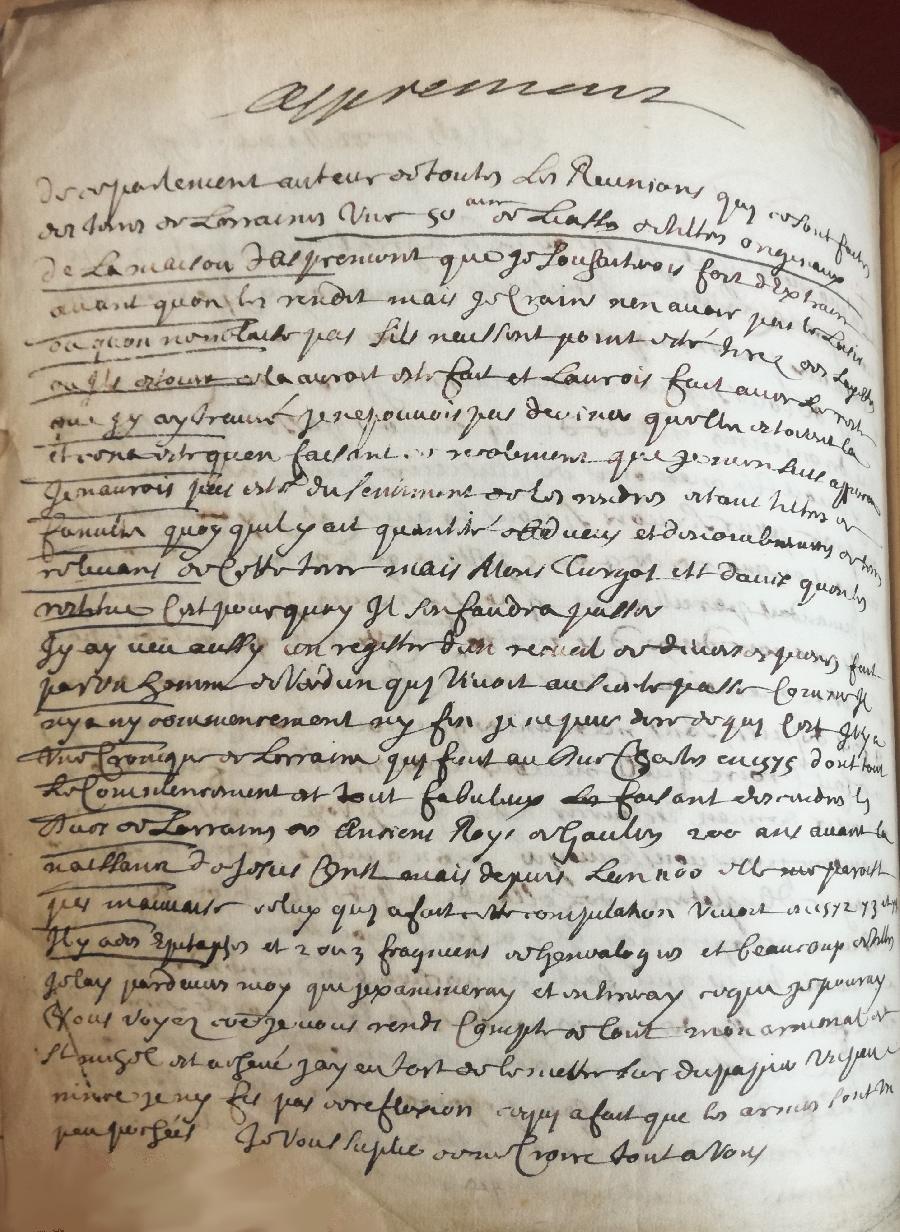 Aspremont
de ce parlement auteur de toutes Les Reunions quy ce sont faites
des terres de Lorraines Vne 50 aine de Liasse de tiltres originaux
de La maison d'aspremont que Je souhaiterois fort d'Extraire
auant quon les rendit mais Je Crains nen auoir pas le Loisir
pas sils neussent point esté tirez des
cela auroit esté fait et Laurois fait auec le reste
que Jy ay trouué Je ne pouuois pas deviner quelles estoient la
et cena esté quen faisant recolement que Je men suis
Je naurois pas esté du sentiment de les rendres estant tiltres de
famille quoy quil y ait quantité d'adueus et denombrements de
releuans de Cette terre mais Mons Turgot est dauix quon les
restitue Cest pourquoy Il sen faudra passer
Jy ay veu aussy un registre d'un recueil de diuerses fait
par vn homme de Verdun quy Viuoit au siecle passé Comme Il
nya ny commencement ny fin je ne peux dire de quy Cest Il y a
Vne Cronique de Lorraine quy finit au Duc Charles en 1575 dont tout
Le Commencement est tout fabuleux faisant descendre les
Ducs de Lorraines des Anciens Roys de Gaules 200 ans auant la
naissance de Jesus Christ mais depuis Lan elle me paroist
pas mauuaise celuy quy a fait cette compilation Viuoit en 1572 73 et
Il y a des Epitaphes et 2 ou 3 fragments de Genealogies et beaucoup de
Je lay pardeuers moy que jexamineray et en tireray ce que Je pouray
Vous voyez que Je vous rends Compte de tout mon armorial de
St mihel est acheué Jay eu tort de le mettre sur du papier Vn peu
mince Je ny fis pas de reflexion ce quy a fait que les armes sont vn
peu pochées Je Vous suplie de me Croire tout a Vous